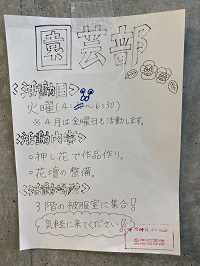 園芸部
<活動日>
火曜(4:　～6:30)
※4月は金曜日も活動します。
<活動内容>
○押し花で作品作り。
○花壇の整備。
<活動場所>
3階の被服室に集合!
気軽に来てください!!